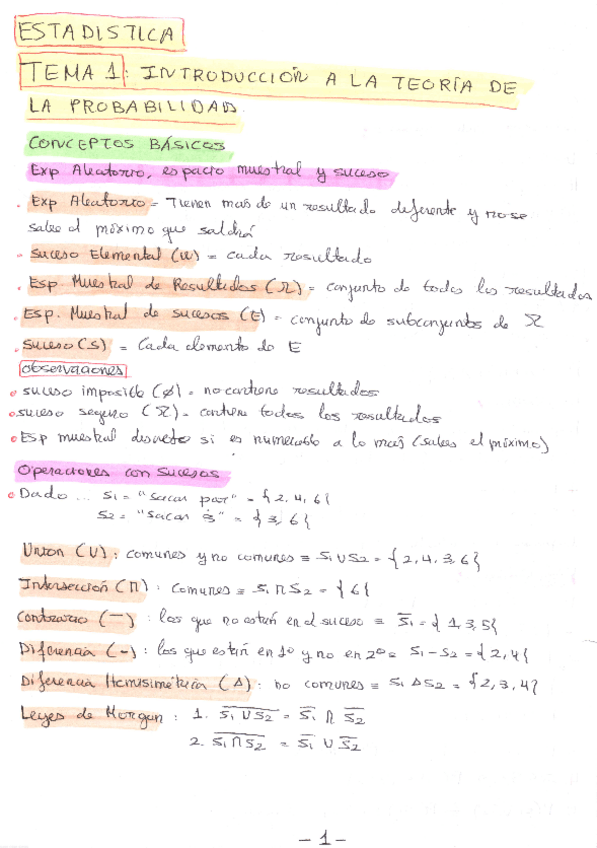 ESTADISTICA
TEMA 1: INTRODUCCIÓN A LA TEORÍA DE
LA PROBABILIDAD.
CONCEPTOS BÁSICOS
Exp Aleatorio, espacio muestral y suceso
. Exp Aleatorio = Tienen más de un resultado diferente y no se
sabe el próximo que saldrá
. Suceso Elemental (w) = cada resultado
. Esp. Muestral de Resultados (Ω) = conjunto de todos los resultados
. Esp. Muestral de sucesos (E) = conjunto de subconjuntos de Ω
. Suceso (S) = Cada elemento de E
observaciones
o suceso imposible (∅) = no contiene resultados
o suceso seguro (Ω) = contiene todos los resultados
o Esp muestral discreto si es numerable a lo más (sabes el próximo)
Operaciones con sucesos
o Dado ... S1 = "Sacar par" = {2,4,6}
S2 = "Sacar 3̇" = {3,6}
Union (U): comunes y no comunes ≡ S1 U S2 = {2,4,3,6}
Intersección (∩): comunes ≡ S1 ∩ S2 = {6}
Contrario (—): los que no están en el suceso ≡ S̅1 = {1,3,5}
Diferencia (-): los que están en 1º y no en 2º ≡ S1 - S2 = {2,4}
Diferencia Hemisimétrica (Δ): no comunes ≡ S1 Δ S2 = {2,3,4}
Leyes de Morgan: 1. S̅1̅ ̅U̅ ̅S̅2̅ = S̅1 ∩ S̅2
2. S̅1̅ ̅∩̅ ̅S̅2̅ = S̅1 U S̅2
-1-